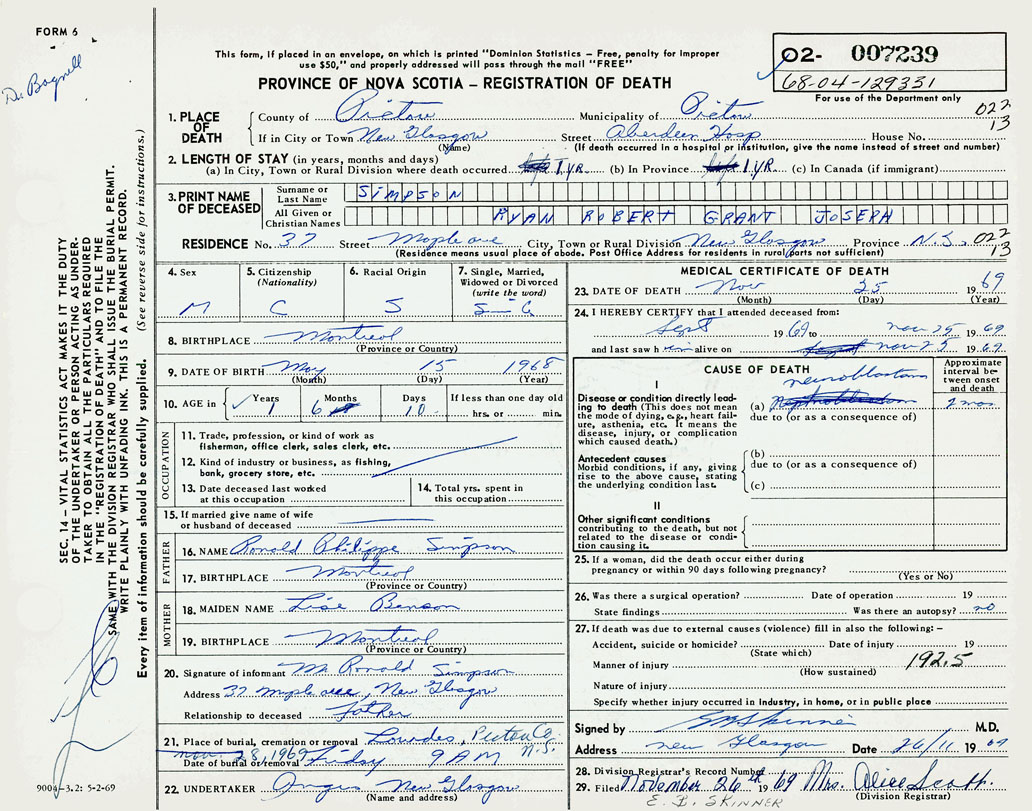 FORM 6
Dr. Bagnell
This form, if placed in an envelope, on which is printed "Dominion Statistics – Free, penalty for improper
use $50," and properly addressed will pass through the mail "FREE"
PROVINCE OF NOVA SCOTIA – REGISTRATION OF DEATH
02- 007239
68-04-129331
For use of the Department only
1. PLACE OF DEATH
County of Pictou Municipality of Pictou 022
If in City or Town New Glasgow Street Aberdeen Hosp House No. 13
(Name) (If death occurred in a hospital or institution, give the name instead of street and number)
2. LENGTH OF STAY (in years, months and days)
(a) In City, Town or Rural Division where death occurred 1 yr. (b) In Province 1 yr. (c) In Canada (if immigrant)
3. PRINT NAME OF DECEASED
Surname or Last Name SIMPSON
All Given or Christian Names RYAN ROBERT GRANT JOSEPH
RESIDENCE No. 37 Street Maple ave City, Town or Rural Division New Glasgow Province N.S. 022
(Residence means usual place of abode. Post Office Address for residents in rural parts not sufficient) 13
4. Sex M
5. Citizenship (Nationality) C
6. Racial Origin S
7. Single, Married, Widowed or Divorced (write the word)
8. BIRTHPLACE Montreal
(Province or Country)
9. DATE OF BIRTH May 15 1968
(Month) (Day) (Year)
10. AGE in Years Months Days If less than one day old
1 6 10 hrs. or min.
OCCUPATION
11. Trade, profession, or kind of work as fisherman, office clerk, sales clerk, etc.
12. Kind of industry or business, as fishing, bank, grocery store, etc.
13. Date deceased last worked at this occupation
14. Total yrs. spent in this occupation
15. If married give name of wife or husband of deceased
FATHER
16. NAME Ronald Philippe Simpson
17. BIRTHPLACE Montreal
(Province or Country)
MOTHER
18. MAIDEN NAME Lise Benson
19. BIRTHPLACE Montreal
(Province or Country)
20. Signature of informant Mr Ronald Simpson
Address 37 Maple ave, New Glasgow
Relationship to deceased Father
21. Place of burial, cremation or removal Lourdes, Pictou Co. N.S.
Nov. 28, 1969
Date of burial or removal Friday 9 AM
22. UNDERTAKER Angus New Glasgow
(Name and address)
MEDICAL CERTIFICATE OF DEATH
23. DATE OF DEATH Nov 25 1969
(Month) (Day) (Year)
24. I HEREBY CERTIFY that I attended deceased from:
Sept 1969 to Nov 25 1969
and last saw him alive on Nov 25 1969
CAUSE OF DEATH
Approximate interval between onset and death
I
Disease or condition directly leading to death (This does not mean the mode of dying, e.g., heart failure, asthenia, etc. It means the disease, injury, or complication which caused death.)
neuroblastoma
(a) 2 mos
due to (or as a consequence of)
Antecedent causes
Morbid conditions, if any, giving rise to the above cause, stating the underlying condition last.
(b)
due to (or as a consequence of)
(c)
II
Other significant conditions contributing to the death, but not related to the disease or condition causing it.
25. If a woman, did the death occur either during pregnancy or within 90 days following pregnancy?
(Yes or No)
26. Was there a surgical operation? Date of operation 19
State findings Was there an autopsy? no
27. If death was due to external causes (violence) fill in also the following: –
Accident, suicide or homicide? Date of injury 19
(State which)
Manner of injury 192.5
(How sustained)
Nature of injury
Specify whether injury occurred in Industry, in home, or in public place
Signed by EB Skinner M.D.
Address New Glasgow Date 26/11 1969
28. Division Registrar's Record Number
29. Filed November 26th 1969 Mrs. Alice Scott
(Division Registrar)
E. B. SKINNER
SEC. 14 – VITAL STATISTICS ACT MAKES IT THE DUTY
OF THE UNDERTAKER OR PERSON ACTING AS UNDER-
TAKER TO OBTAIN ALL THE PARTICULARS REQUIRED
IN THE "REGISTRATION OF DEATH" AND TO FILE THE
SAME WITH THE DIVISION REGISTRAR WHO SHALL ISSUE THE BURIAL PERMIT.
WRITE PLAINLY WITH UNFADING INK. THIS IS A PERMANENT RECORD.
Every item of information should be carefully supplied. (See reverse side for instructions.)
9004-3.2: 5-2-69